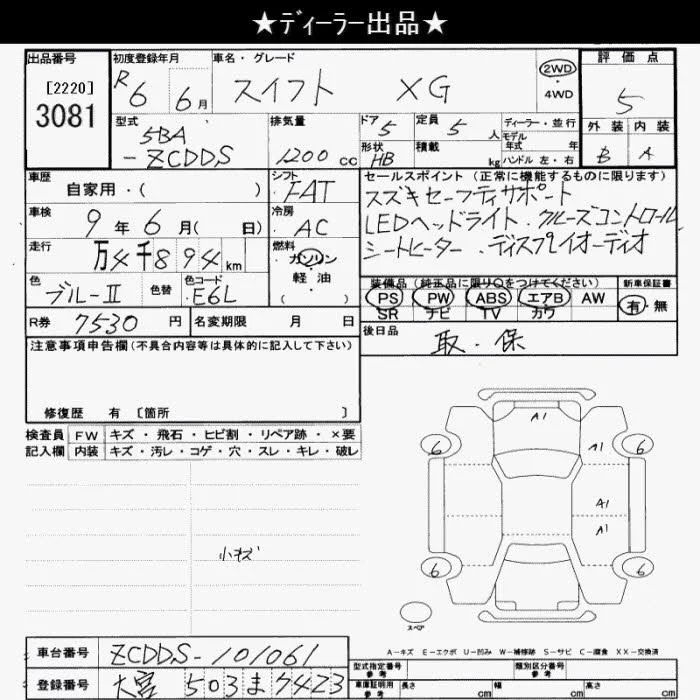 ★ディーラー出品★
出品番号
[2220]
3081
初度登録年月
R6 6月
車名・グレード
スイフト XG
2WD
・
4WD
評価点
5
外装 内装
B A
型式
5BA
-ZCDDS
排気量
1200 cc
ドア
5
定員
5人
形状
HB
積載
kg
ディーラー・並行
モデル
年式 年
ハンドル 左・右
車歴
自家用・( )
シフト
FAT
車検
9年6月( 日)
冷房
AC
走行
万4千894km
燃料
ガソリン
・
軽油
・( )
色
ブルーⅡ
色替
色コード
E6L
R券
7530円
名変期限 月 日
セールスポイント(正常に機能するものに限ります)
スズキセーフティサポート
LEDヘッドライト・クルーズコントロール
シートヒーター・ディスプレイオーディオ
装備品(純正品に限り○をつけてください)
PS PW ABS エアB AW
SR ナビ TV カワ
新車保証書
有・無
後日品
取・保
注意事項申告欄(不具合内容等は具体的に記入して下さい)
修復歴 有〔箇所 〕
検査員 FW キズ・飛石・ヒビ割・リペア跡・×要
記入欄 内装 キズ・汚レ・コゲ・穴・スレ・キレ・破レ
小キズ
A1
6 A1 6
A1
A1
6 6
スペア
A-キズ E-エクボ U-凹み W-補修跡 S-サビ C-腐食 XX-交換済
車台番号
ZCDDS-101061
登録番号
大宮 503 ま 7423
型式指定番号
参考
類別区分番号
参考
車庫証明用
参考
長さ cm 幅 cm 高さ cm